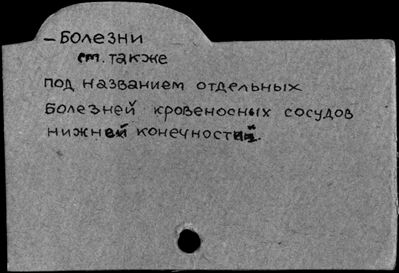 — Болезни
см. также
под названием отдельных
болезней кровеносных сосудов
нижней конечностей.